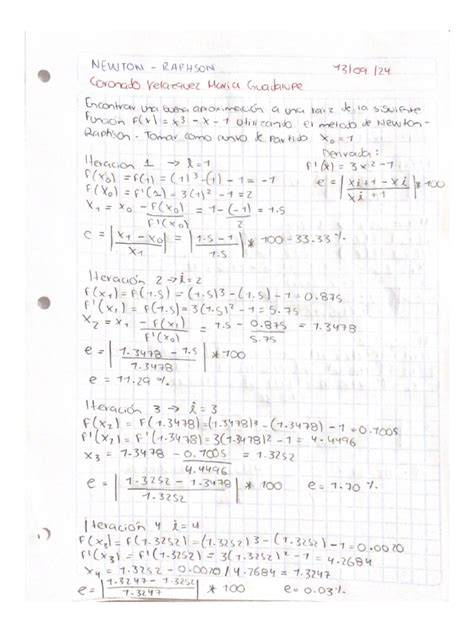 NEWTON - RAPHSON 13/09/24
Coronado Velazquez Maria Guadalupe
Encontrar una buena aproximación a una raiz de la siguiente
Función F(x) = x³ - x - 1 Utilizando el metodo de Newton-
Raphson. Tomar como punto de partida x₀ = 1
Derivada:
Iteracion 1 → i = 1 F'(x) = 3x² - 1
F(x₀) = F(1) = (1)³ - (1) - 1 = -1 e = |xi+1 - xi / xi+1| * 100
F(x₀) = F'(1) = 3(1)² - 1 = 2
x₁ = x₀ - F(x₀) / F'(x₀) = 1 - (-1) / 2 = 1.5
e = |x₁ - x₀ / x₁| = |1.5 - 1 / 1.5| * 100 = 33.33 %
Iteración 2 → i = 2
F(x₁) = F(1.5) = (1.5)³ - (1.5) - 1 = 0.875
F'(x₁) = F(1.5) = 3(1.5)² - 1 = 5.75
x₂ = x₁ - F(x₁) / F'(x₀) = 1.5 - 0.875 / 5.75 = 1.3478
e = |1.3478 - 1.5 / 1.3478| * 100
e = 11.29 %
Iteración 3 → i = 3
F(x₂) = F(1.3478) = (1.3478)³ - (1.3478) - 1 = 0.1005
F'(x₂) = F'(1.3478) = 3(1.3478)² - 1 = 4.4496
x₃ = 1.3478 - 0.1005 / 4.4496 = 1.3252
e = |1.3252 - 1.3478 / 1.3252| * 100 e = 1.70 %
Iteración 4 i = 4
F(x₂) = F(1.3252) = (1.3252)³ - (1.3252) - 1 = 0.0020
F'(x₃) = F'(1.3252) = 3(1.3252)² - 1 = 4.2684
x₄ = 1.3252 - 0.0020 / 4.2684 = 1.3247
e = |1.3247 - 1.3252 / 1.3247| * 100 e = 0.03 %